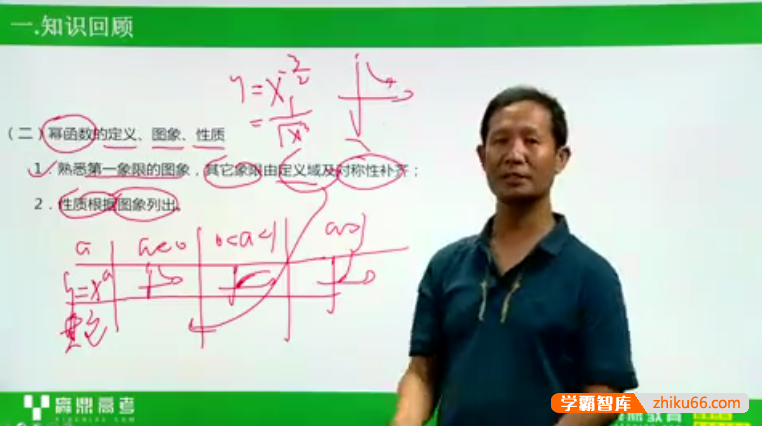 一.知识回顾
y=x^{-3/2}
=1/√x³
（二）幂函数的定义、图象、性质
1．熟悉第一象限的图象，其它象限由定义域及对称性补齐；
2．性质根据图象列出。
a a<0 0<a<1 a>1
y=x^a
高考
学霸智库 zhiku66.com
教育